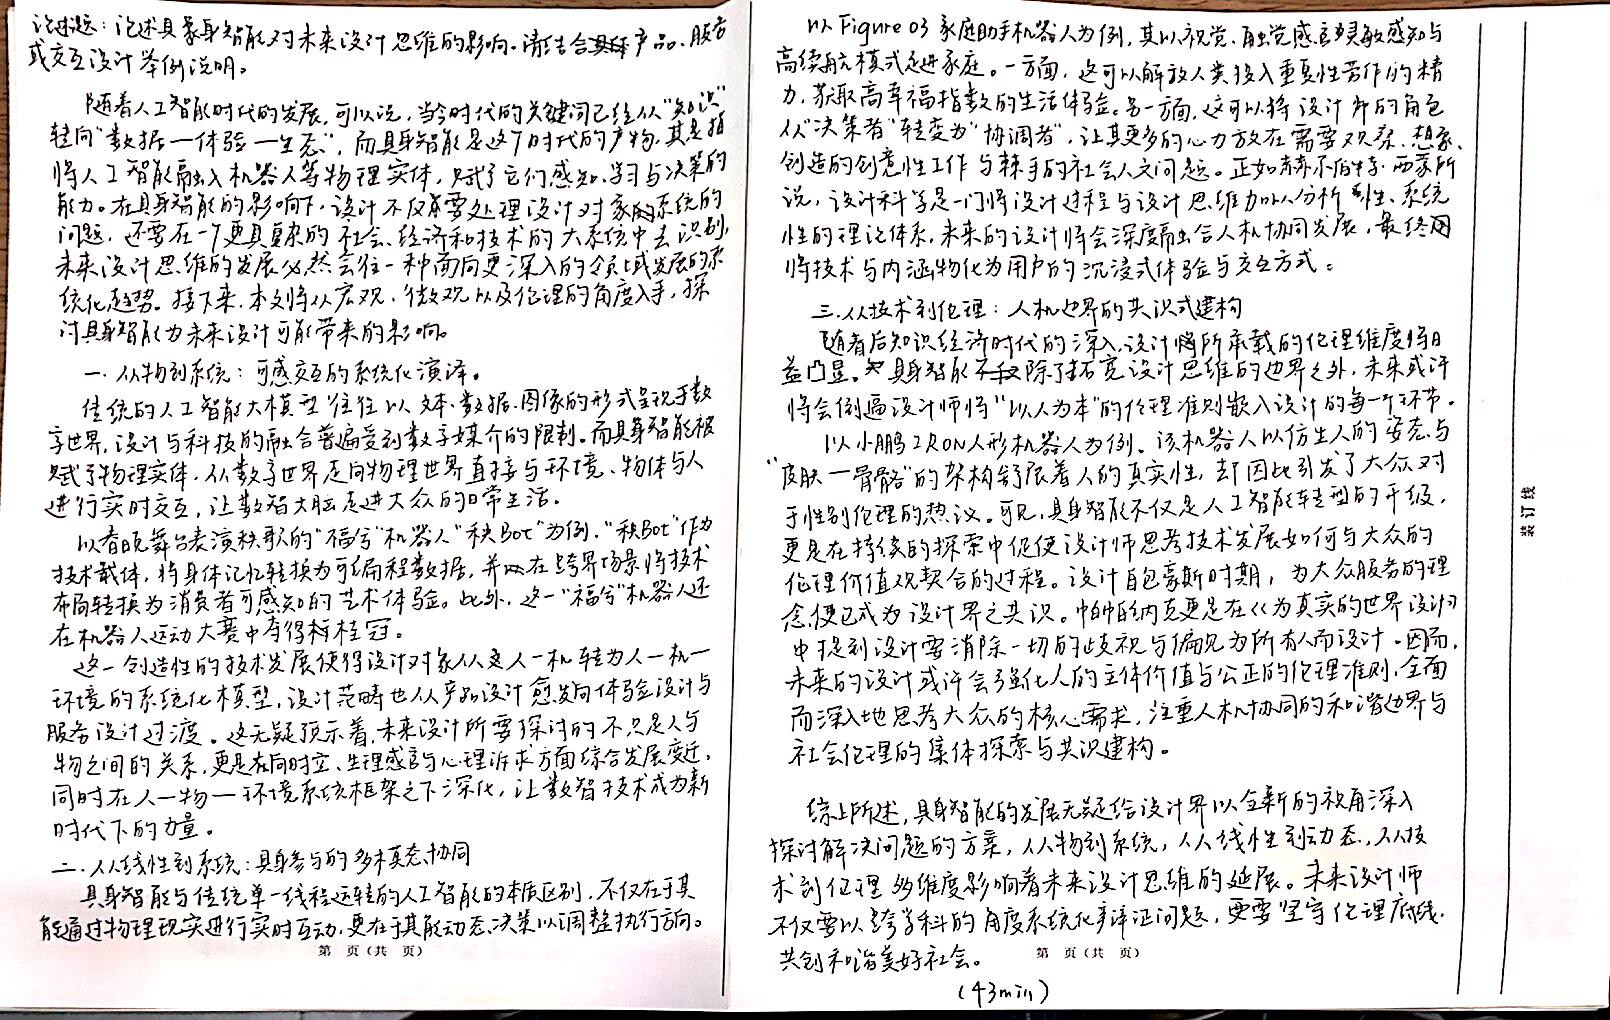 论述题：论述具象身智能对未来设计思维的影响。请结合具体产品、服务
或交互设计举例说明。
随着人工智能时代的发展，可以说，当今时代的关键词已经从“知识”
转向“数据—体验—生态”，而具身智能是这个时代的产物，其是指
将人工智能融入机器人等物理实体，赋予它们感知、学习与决策的
能力。在具身智能的影响下，设计不仅需要处理设计对象的系统的
问题，还要在一个更具复杂的社会、经济和技术的大系统中去识别，
未来设计思维的发展必然会往一种面向更深入的领域发展的系
统化趋势。接下来，本文将从宏观、微观以及伦理的角度入手，探
讨具身智能为未来设计可能带来的影响。
一. 从物到系统：可感交互的系统化演译。
传统的人工智能大模型往往以文本、数据、图像的形式呈现于数
字世界，设计与科技的融合普遍受到数字媒介的限制。而具身智能被
赋予物理实体，从数字世界走向物理世界直接与环境、物体与人
进行实时交互，让数智大脑走进大众的日常生活。
以春晚舞台表演秧歌的“福兮”机器人“秧Bot”为例，“秧Bot”作为
技术载体，将身体记忆转换为可编程数据，并在跨界场景将技术
布局转换为消费者可感知的艺术体验。此外，这一“福兮”机器人还
在机器人运动大赛中夺得桂冠。
这一创造性的技术发展使得设计对象从人—机转为人—机—
环境的系统化模型，设计范畴也从产品设计愈发向体验设计与
服务设计过渡。这无疑预示着，未来设计所要探讨的不只是人与
物之间的关系，更是在同时立、生理感官与心理诉求方面综合发展变迁，
同时在人—物—环境系统框架之下深化，让数智技术成为新
时代下的力量。
二. 从线性到系统：具身参与的多模态协同
具身智能与传统单一线程运转的人工智能的本质区别，不仅在于其
能通过物理现实进行实时互动，更在于其能动态决策以调整执行方向。
第 页（共 页）
以Figure 03 家庭助手机器人为例，其以视觉、触觉感官灵敏感知与
高续航模式走进家庭。一方面，这可以解放人类投入重复性劳作的精
力，获取高幸福指数的生活体验。另一方面，这可以将设计师的角色
从“决策者”转变为“协调者”，让其更多的心力放在需要观察、想象、
创造的创意性工作与棘手的社会人文问题。正如赫尔伯特·西蒙所
说，设计科学是一门将设计过程与设计思维加以分析性、系统
性的理论体系，未来的设计将会深度融合人机协同发展，最终
将技术与内涵物化为用户的沉浸式体验与交互方式。
三. 从技术到伦理：人机边界的共识式建构
随着后知识经济时代的深入，设计所承载的伦理维度将日
益凸显。具身智能不仅除了拓宽设计思维的边界之外，未来或许
将会倒逼设计师将“以人为本”的伦理准则嵌入设计的每一个环节。
以小鹏IRON人形机器人为例，该机器人以仿生人的姿态与
“皮肤—骨骼”的架构舒展着人的真实性，却因此引发了大众对
于性别伦理的热议。可见，具身智能不仅是人工智能转型的升级，
更是在持续的探索中促使设计师思考技术发展如何与大众的
伦理价值观契合的过程。设计自包豪斯时期，为大众服务的理
念便已成为设计界之共识。帕帕纳克更是在《为真实的世界设计》
中提到设计要消除一切的歧视与偏见为所有人而设计。因而，
未来的设计或许会强化人的主体价值与公正的伦理准则，全面
而深入地思考大众的核心需求，注重人机协同的和谐边界与
社会伦理的集体探索与共识建构。
综上所述，具身智能的发展无疑给设计界以全新的视角深入
探讨解决问题的方案，从物到系统，从线性到动态，从技
术到伦理多维度影响着未来设计思维的延展。未来设计师
不仅需以跨学科的角度系统化辩证问题，更要坚守伦理底线，
共创和谐美好社会。
第 页（共 页）
（43min）
装订线